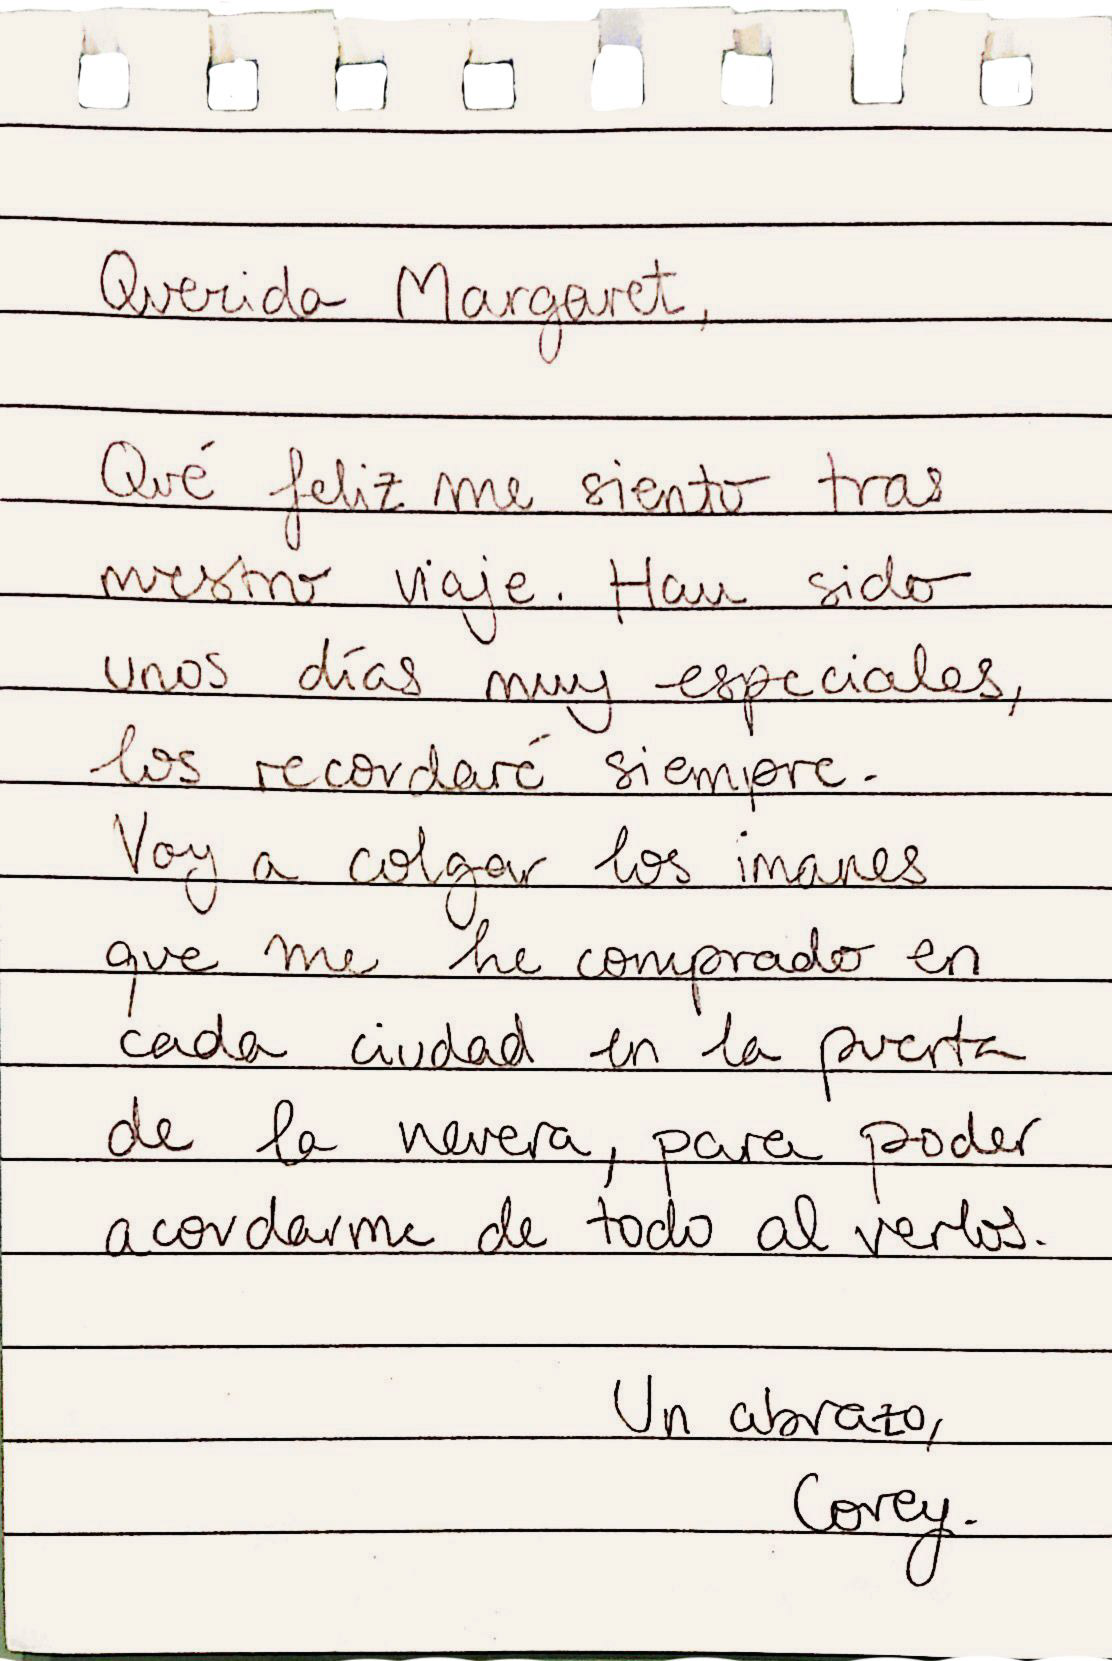 Querida Margaret,
Qué feliz me siento tras
nuestro viaje. Han sido
unos días muy especiales,
los recordaré siempre.
Voy a colgar los imanes
que me he comprado en
cada ciudad en la puerta
de la nevera, para poder
acordarme de todo al verlos.
Un abrazo,
Corey.